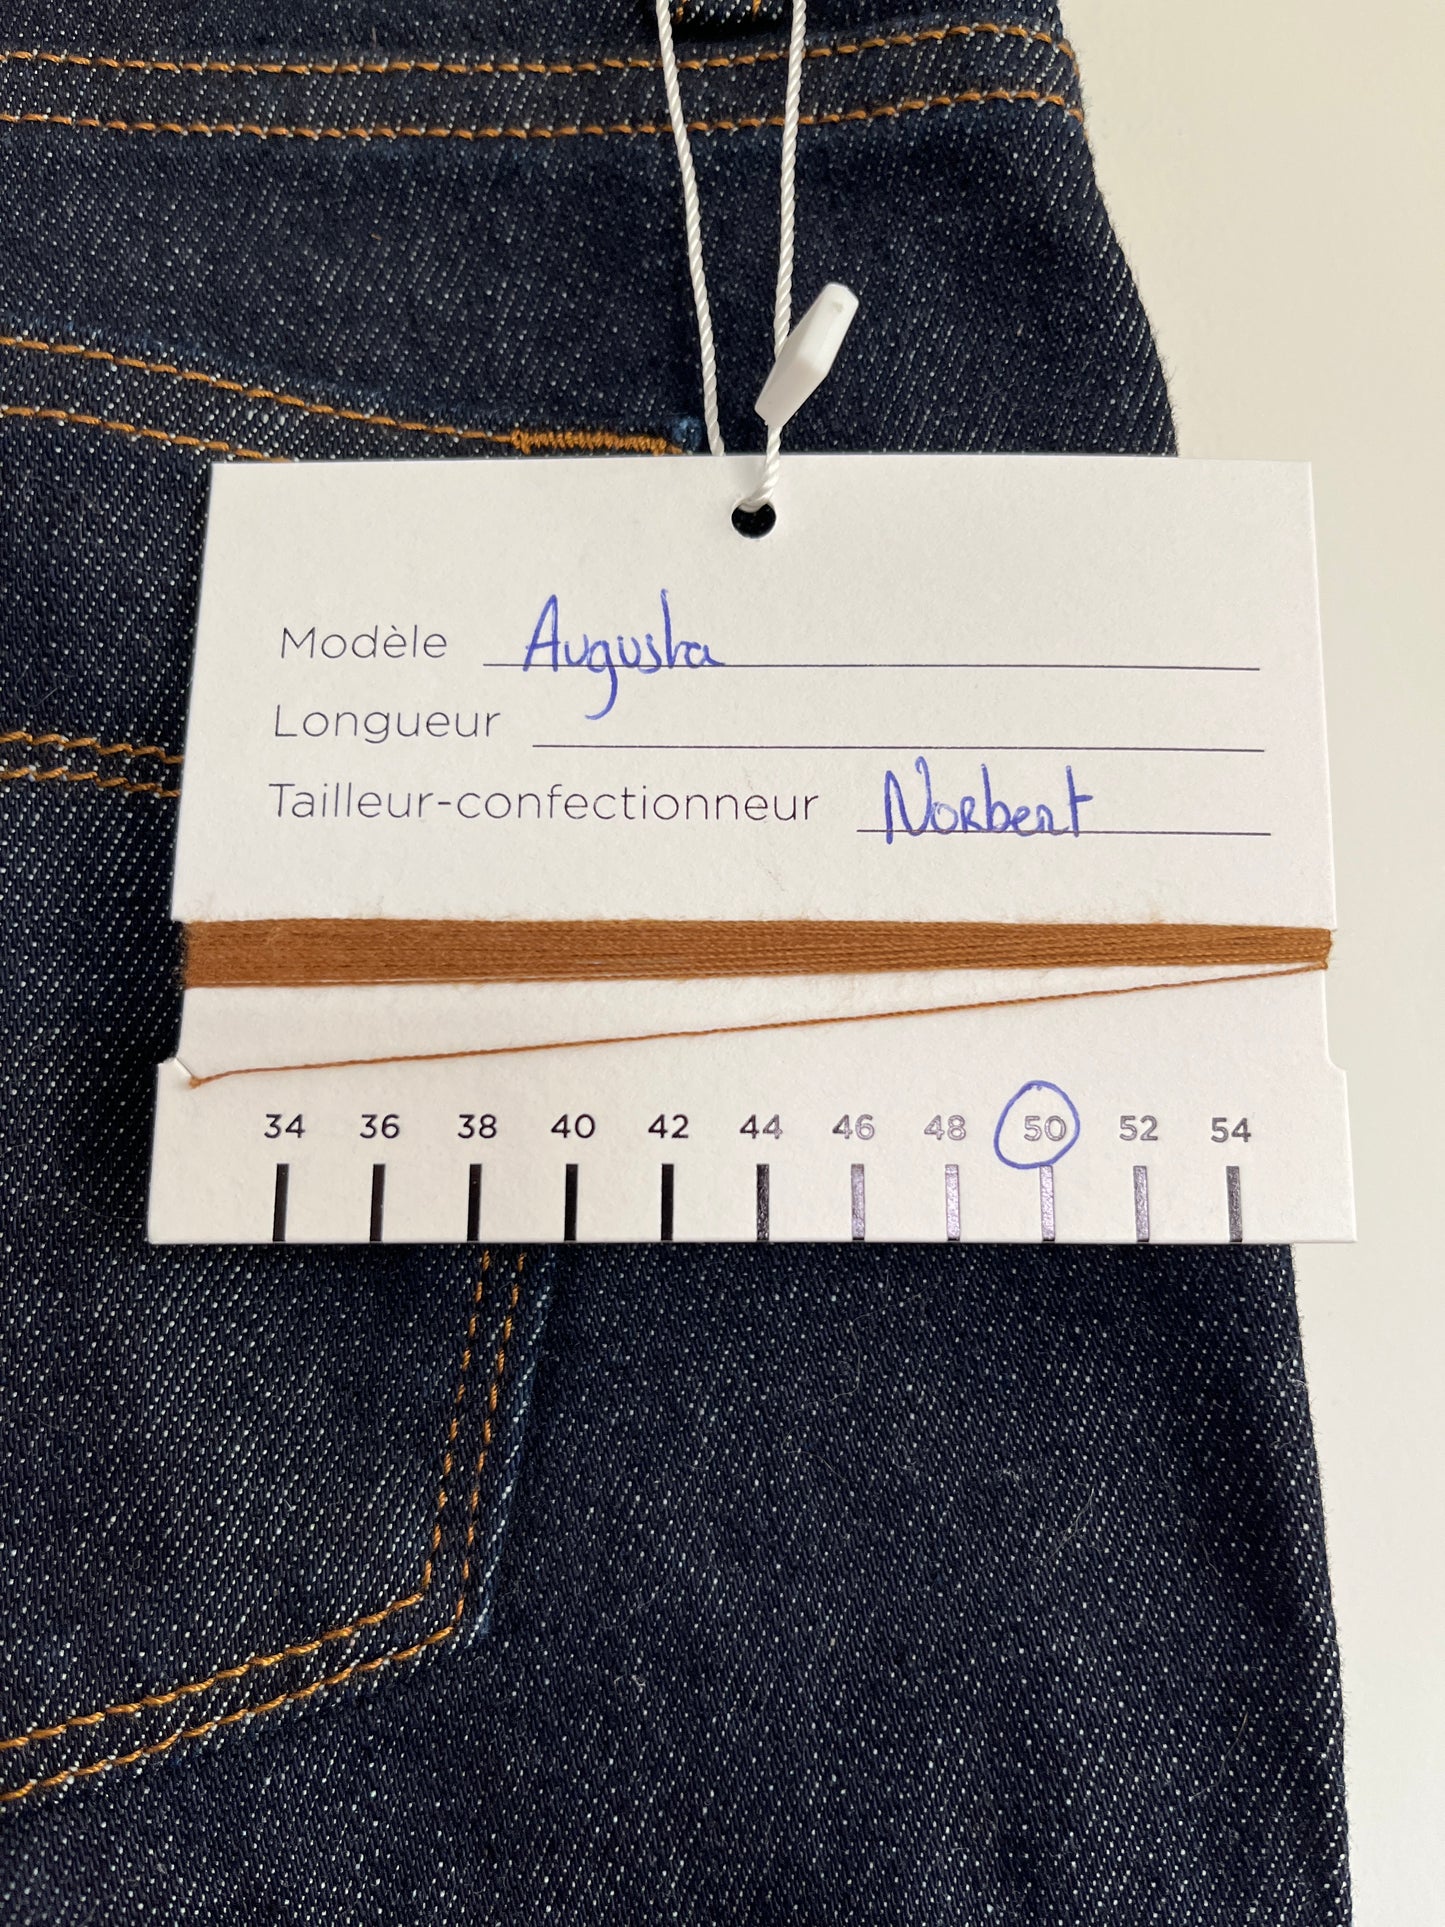 Modèle Augusta
Longueur
Tailleur-confectionneur Norbert
34 36 38 40 42 44 46 48 50 52 54